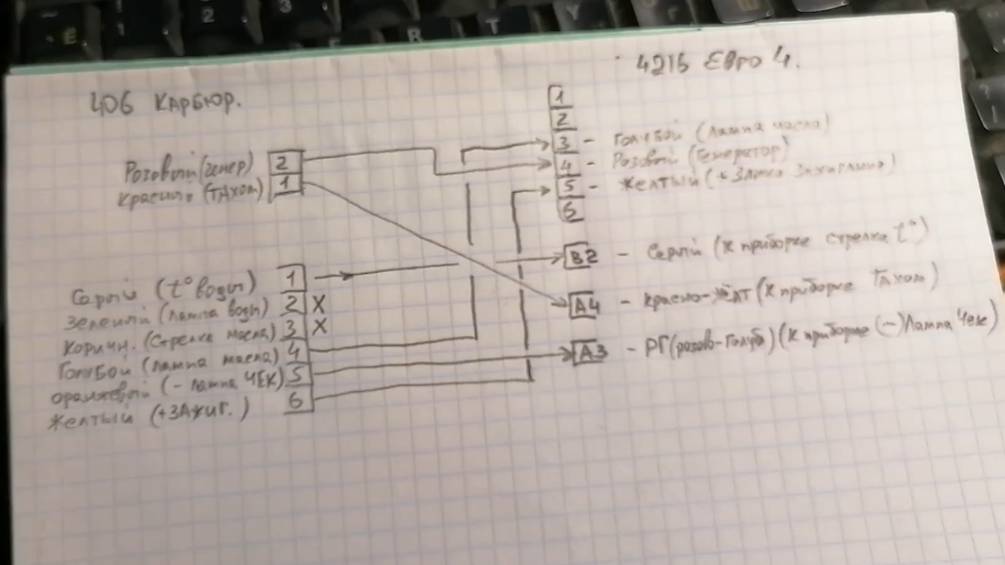 406 Карбюр.
4216 Евро 4.
1
2
3 - Голубой (лампа масла)
4 - Розовый (Генератор)
5 - Желтый (+ Замка зажигания)
6
Розовый (генер) 2
красно (Тахом) 1
B2 - Серый (к приборке стрелка t°)
A4 - красно-жёлт (к приборке Тахом)
A3 - РГ (розов-Голуб) (к приборке (-) Лампа Чек)
Серый (t° воды) 1
Зеленый (лампа воды) 2 X
Коричн. (Стрелка масла) 3 X
Голубой (лампа масла) 4
оранжевый (- лампа ЧЕК) 5
Желтый (+Зажиг.) 6